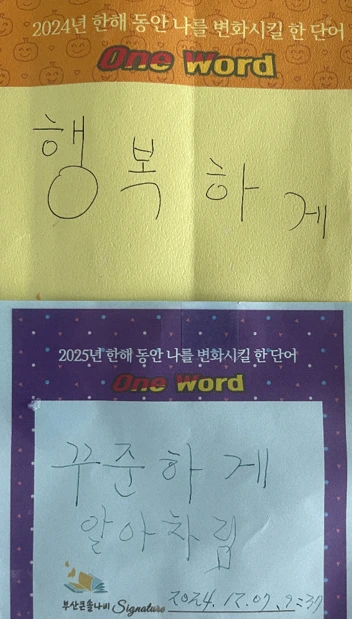 2024년 한해 동안 나를 변화시킬 한 단어
One Word
행복하게
2025년 한해 동안 나를 변화시킬 한 단어
One Word
꾸준하게
알아차림
부산큰솔나비 Signature 2024. 12. 07. 9:37